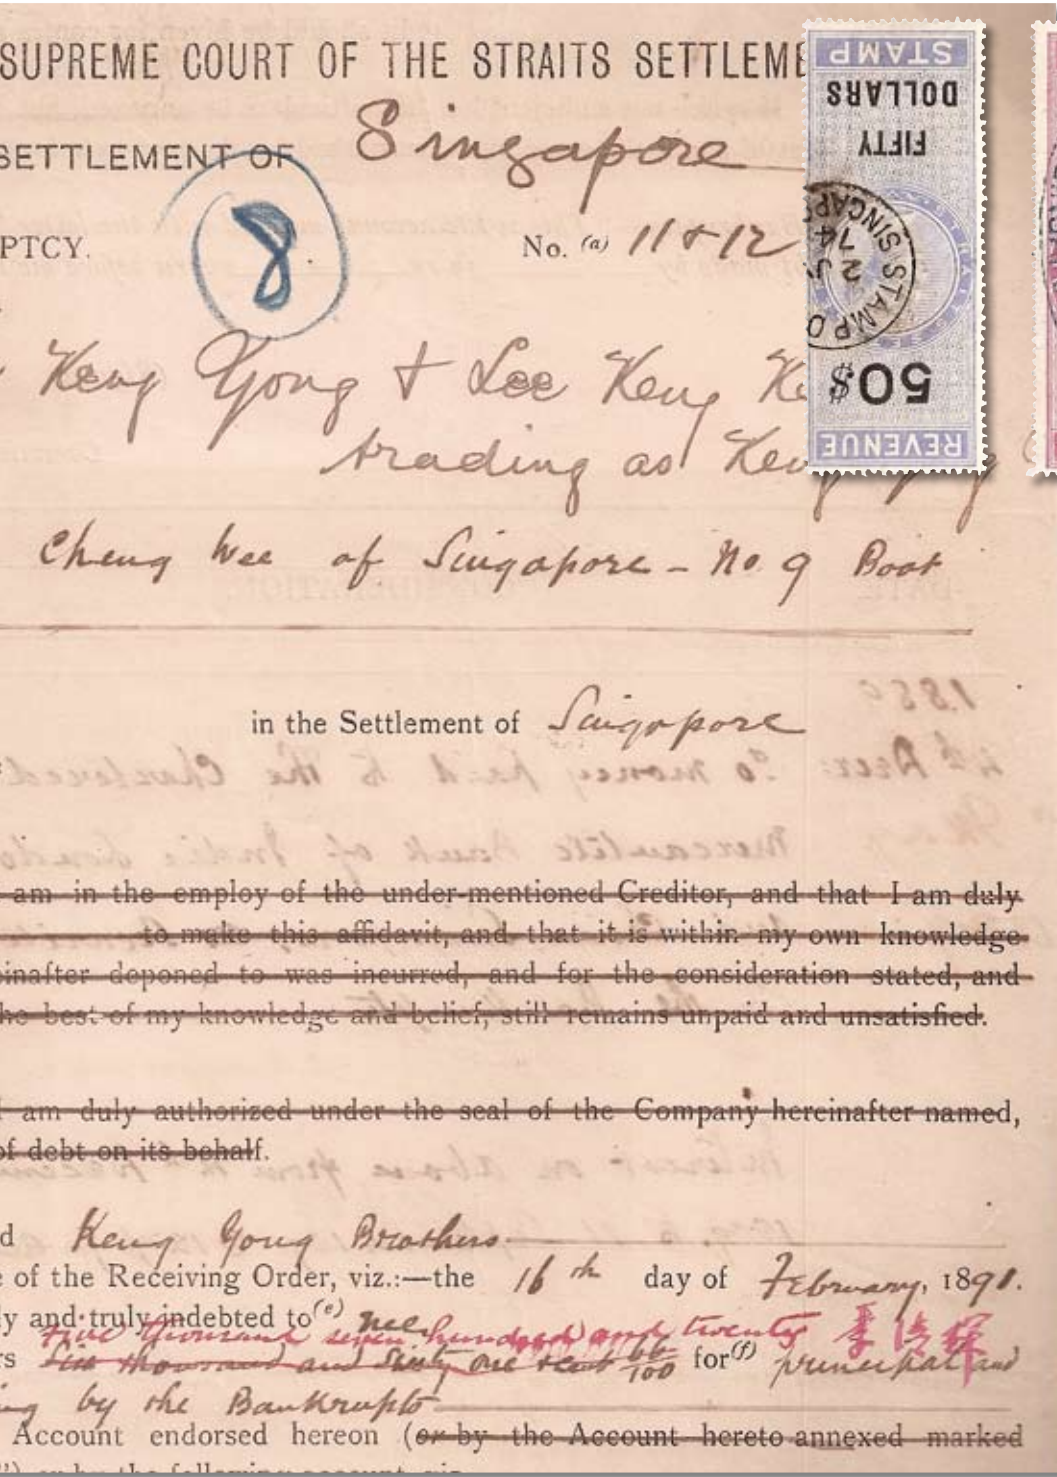 SUPREME COURT OF THE STRAITS SETTLEME
SETTLEMENT OF Singapore
8
PTCY. No. (a) 11 & 12
Keng Yong & Lee Keng
trading as Keng
Cheng Wee of Singapore - No. 9 Boat
in the Settlement of Singapore
am in the employ of the under-mentioned Creditor, and that I am duly
to make this affidavit, and that it is within my own knowledge
inafter deponed to was incurred, and for the consideration stated, and
he best of my knowledge and belief, still remains unpaid and unsatisfied.
I am duly authorized under the seal of the Company hereinafter named,
of debt on its behalf.
d Keng Yong Brothers
e of the Receiving Order, viz.:—the 16th day of February, 1891.
ly and truly indebted to (e) me
five thousand seven hundred and twenty 李清輝
rs Six thousand and Sixty one 66/100 for (f) principal and
ing by the Bankrupts
Account endorsed hereon (or by the Account hereto annexed marked
") or by the following account, viz.
STAMP
DOLLARS
FIFTY
STAMP O
SINGAPO
2 J
50$
REVENUE